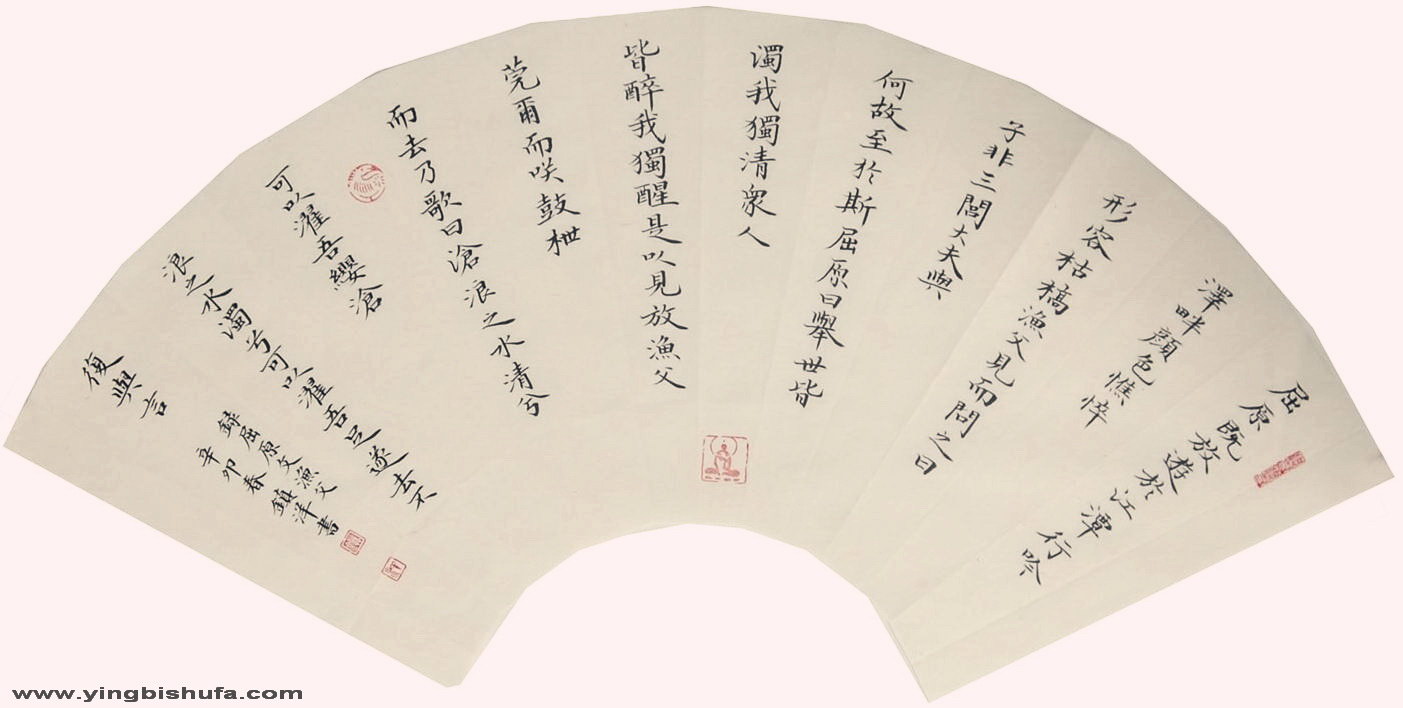 屈原既放遊於江潭行吟
澤畔顏色憔悴
形容枯槁漁父見而問之曰
子非三閭大夫與
何故至於斯屈原曰舉世皆
濁我獨清衆人
皆醉我獨醒是以見放漁父
莞爾而咲鼓枻
而去乃歌曰滄浪之水清兮
可以濯吾纓滄
浪之水濁兮可以濯吾足遂去不
復與言
錄屈原文漁父
辛卯春鎮洋書
www.yingbishufa.com